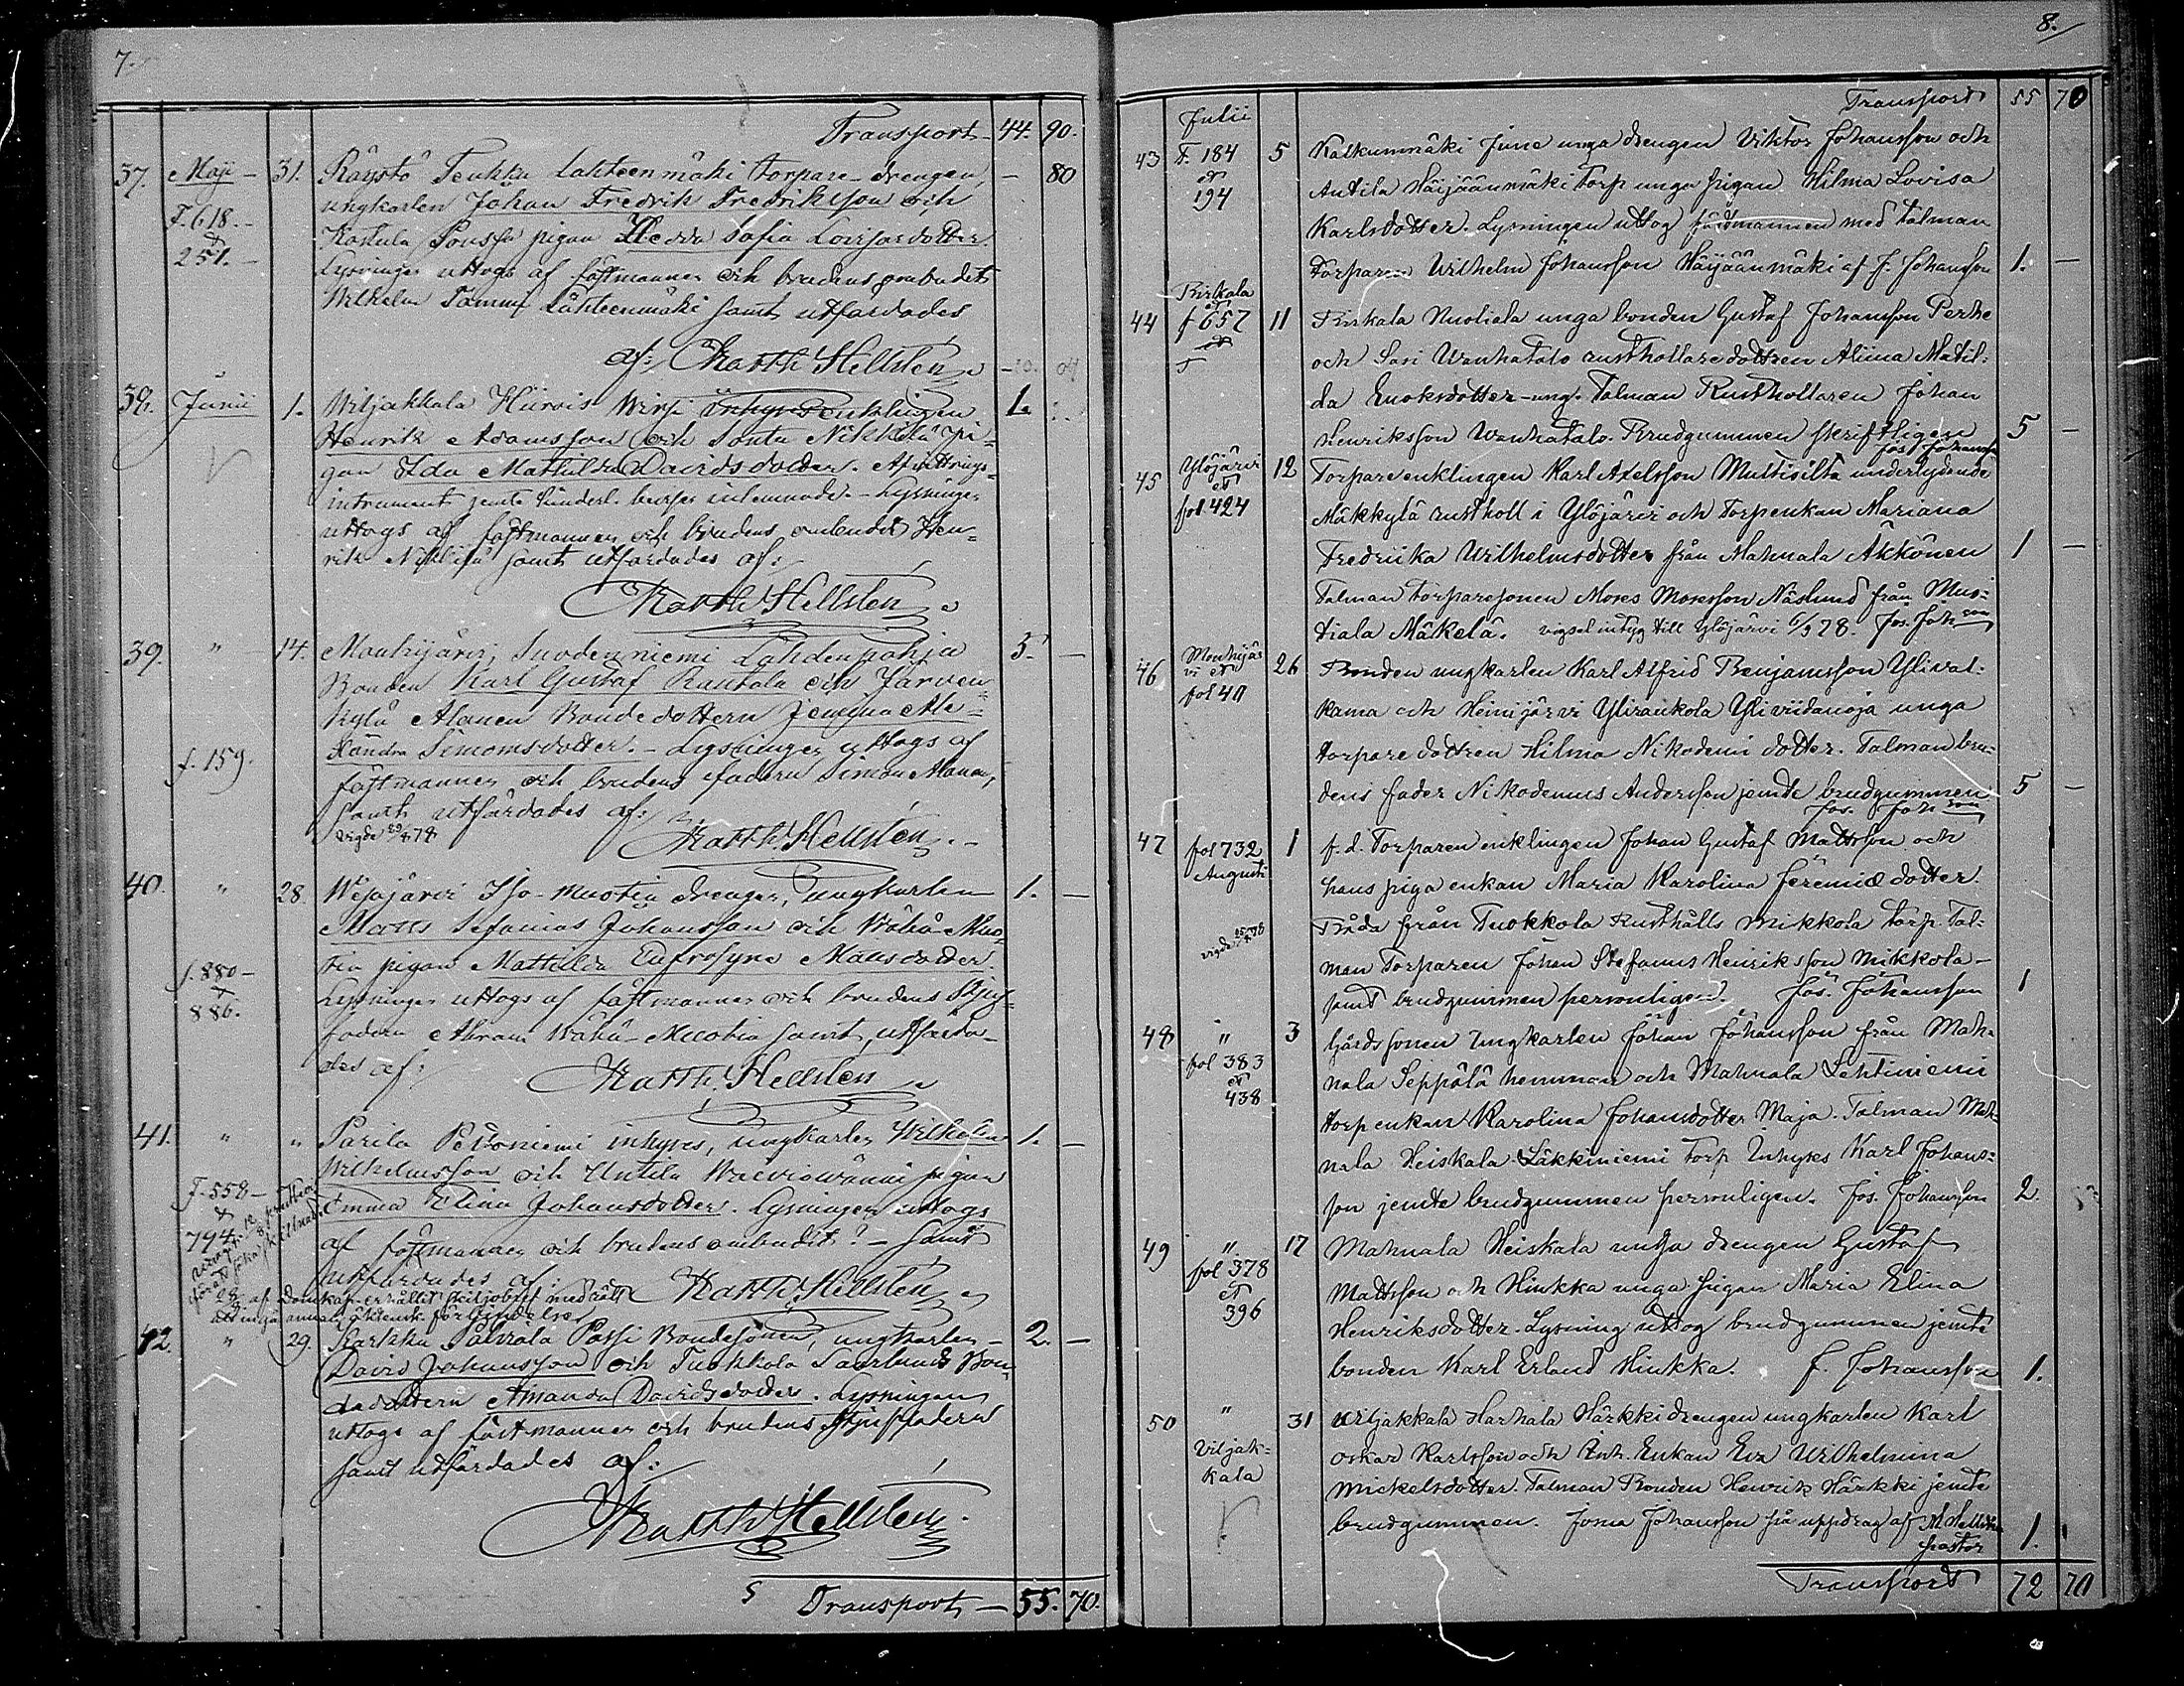 7.
Transport 44. 90.
37. Maji 31. Räystö Teukku Lahteenmäki torpare-drengen, — 80
ungkarlen Johan Fredrik Fredriksson och
F. 618. Koskula Poussa pigan Hedda Sofia Lovisasdotter.
& 251. Lysningen uttogs af fästmannen och brudens ombudet
Wilhelm Tammi Lähteenmäki samt utfärdades
af: Matth Hellsten
38. Junii 1. Wiljakkala Hiirois Wirsi inhyses enklingen 1.
Henrik Adamsson och Sontu Nikkilä pi-
gan Ida Mathilda Davidsdotter. Afvittrings-
instrument jemte hinderl. bevise inlemnade. Lysningen
uttogs af fästmannen och brudens ombudet Hen-
rik Nikkilä samt utfärdades af:
Matth Hellsten
39. " 14. Mouhijärvi, Suodenniemi Lähdenpohja 5. —
Bonden Karl Gustaf Rautala och Järven-
kylä Alanen Bondedottern Jemina Ale-
xandra Simonsdotter. Lysningen uttogs af
f. 159. fästmannen och brudens fadern Simon Alanen,
samt utfärdades af:
vigde 29/8 78 Matth. Hellsten
40. " 28. Wesajärvi Iso-Muotia drengen, ungkarlen 1. —
Matts Sefanias Johansson och Wähä-Muo-
tia pigan Mathilda Eufrosyne Mattsdotter.
f. 880 Lysningen uttogs af fästmannen och brudens Styf-
& 886. fadern Abram Wähä-Muotia samt utfärda-
des af: Matth. Hellsten
41. " " Parila Petroniemi inhyses, ungkarlen Wilhelm 1. —
Wilhelmsson och Untila pigan
F. 558 Emma Elina Johansdotter. Lysningen uttogs
& 794. af fästmannen och brudens ombudet? — samt
utfärdades af: Matth Hellsten
af Domkap. erhållit skiljobref med rätt
att ingå annan äktensk. förbindelse
42. " 29. Sarkku Palvala Passi Bondesonen, ungkarlen 2. —
David Johansson och Tuokkola Saarlunds Bon-
dedottern Amanda Davidsdotter. Lysningen
uttogs af fästmannen och brudens Styffadern
samt utfärdades af:
Matth Hellsten
Transport 55. 70.
8.
Transport 55 70
Julii
43 F. 184 5 Kalkunmäki June unga drengen Viktor Johansson och
et 194 Antila Häijäänmäki Torp unga pigan Hilma Lovisa
Karlsdotter. Lysningen uttog fästmannen med talman
Torparen Wilhelm Johansson Häijäänmäki af J. Johansson 1. —
Birkala et
44 f 657 11 Birkala Nuoliala unga bonden Gustaf Johansson Perhe
och Sasi Wanhatalo rusthollaredottren Aliina Matil-
da Enoksdotter ung. Talman Rusthollaren Johan
Henriksson Wanhatalo. Brudgummen skriftligen 5 —
Jos. Johansson
45 Ylöjärvi 12 Torpareenklingen Karl Axelsson Multisilta underlydende
et fol 424 Mäkkylä rustholl i Ylöjärvi och Torpenkan Mariana
Fredriika Wilhelmsdotter från Mahnala Äkkönen 1 —
Talman Torparesonen Moses Mosesson Näslund från Mus-
tiala Mäkelä. vigsel intyg till Ylöjärvi 6/9 78. Jos. Johsson
46 Mouhijär- 26 Bonden ungkarlen Karl Alfrid Benjamsson Ylival-
vi et fol 40 kama och Heinijärvi Yliraukola Yliviidanoja unga
torpare dottren Hilma Nikodemi dotter. Talman bru-
dens fader Nikodemus Andersson jemte brudgummen 5 —
Jos. Johsson
47 fol 732 1 f.d. Torparen enklingen Johan Gustaf Mattsson och
Augusti hans piga enkan Maria Karolina Jeremiæ dotter.
Båda från Tuokkola Rusthålls Mikkola torp. Tal-
vigde man Torparen Johan Stefanus Henriksson Mikkola
samt brudgummen personligen. Jos. Johansson 1
48 " 3 Gårdssonen Ungkarlen Johan Johansson från Mah-
fol 383 nala Seppälä hemman och Mahnala Lehtiniemi
et 438 torpenkan Karolina Johansdotter Maja. Talman Mah-
nala Heiskala Läkkiniemi Torp Inhyses Karl Johans-
son jemte brudgummen personligen. Jos. Johansson 2.
49 " 17 Mahnala Heiskala unga drengen Gustaf
fol 378 Mattsson och Hiukka unga pigan Maria Elina
et 396 Henriksdotter. Lysning uttog brudgummen jemte
bonden Karl Erland Hiukka. J. Johansson 1.
50 " 31 Wiljakkala Harhala Härkki drengen ungkarlen Karl
Viljak- Oskar Karlsson och Inh. Enkan Eva Wilhelmina
kala Mickelsdotter. Talman Bonden Henrik Härkki jemte
brudgummen. Jonas Johansson på uppdrag af M. Hellsten
pastor 1.
Transport 72 70